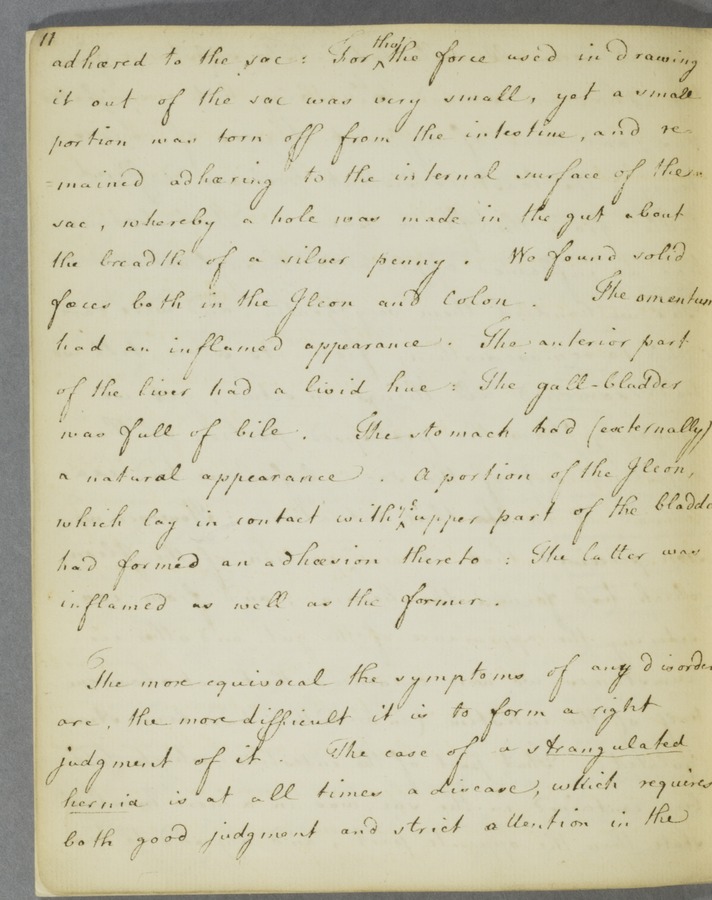 11
adhæred to the sac: For tho' the force used in drawing
it out of the sac was very small, yet a small
portion was torn off from the intestine, and re-
=mained adhæring to the internal surface of the
sac, whereby a hole was made in the gut about
the breadth of a silver penny. We found solid
fæces both in the Jleon and Colon. The omentum
had an inflamed appearance. The anterior part
of the liver had a livid hue: The gall-bladder
was full of bile. The stomach had (externally)
a natural appearance. A portion of the Jleon,
which lay in contact with ye upper part of the bladde
had formed an adhæsion thereto: The latter was
inflamed as well as the former.
The more equivocal the symptoms of any disorder
are, the more difficult it is to form a right
judgment of it. The case of a strangulated
hernia is at all times a disease, which requires
both good judgment and strict attention in the